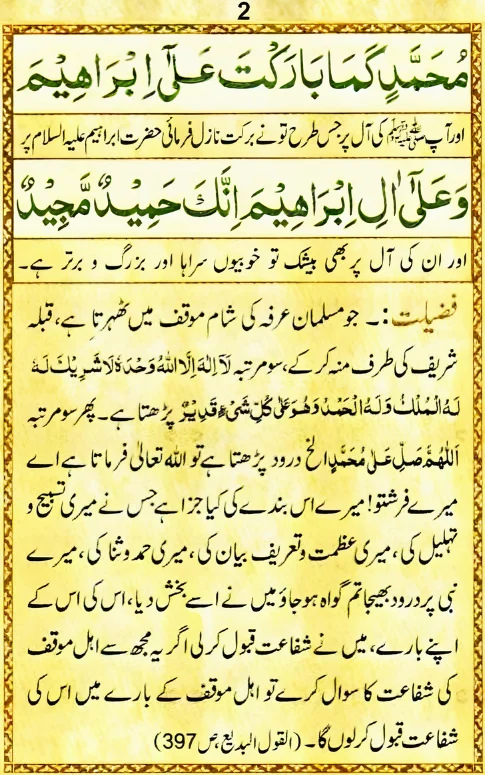 2
مُحَمَّدٍ كَمَا بَارَكْتَ عَلٰٓى اِبْرَاهِيْمَ
اور آپ ﷺ کی آل پر جس طرح تو نے برکت نازل فرمائی حضرت ابراہیم علیہ السلام پر
وَعَلٰٓى اٰلِ اِبْرَاهِيْمَ اِنَّكَ حَمِيْدٌ مَّجِيْدٌ
اور ان کی آل پر بھی بیشک تو خوبیوں سراہا اور بزرگ و برتر ہے۔
فضیلت:۔ جو مسلمان عرفہ کی شام موقف میں ٹھہرتا ہے، قبلہ
شریف کی طرف منہ کر کے، سو مرتبہ لَآ اِلٰهَ اِلَّا اللّٰهُ وَحْدَهٗ لَا شَرِيْكَ لَهٗ
لَهُ الْمُلْكُ وَلَهُ الْحَمْدُ وَهُوَ عَلٰى كُلِّ شَيْءٍ قَدِيْرٌ پڑھتا ہے۔ پھر سو مرتبہ
اَللّٰهُمَّ صَلِّ عَلٰى مُحَمَّدٍ الخ درود پڑھتا ہے تو اللہ تعالیٰ فرماتا ہے اے
میرے فرشتو! میرے اس بندے کی کیا جزا ہے جس نے میری تسبیح و
تہلیل کی، میری عظمت و تعریف بیان کی، میری حمد و ثنا کی، میرے
نبی پر درود بھیجا تم گواہ ہو جاؤ میں نے اسے بخش دیا، اس کی اس کے
اپنے بارے، میں نے شفاعت قبول کر لی اگر یہ مجھ سے اہل موقف
کی شفاعت کا سوال کرے تو اہل موقف کے بارے میں اس کی
شفاعت قبول کر لوں گا۔ (القول البدیع ص 397)